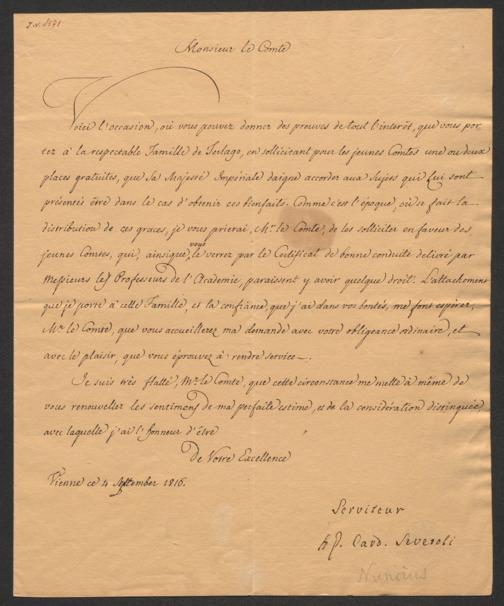 J.N. 8571
Monsieur le Comte
Voici l'occasion, où vous pouvez donner des preuves de tout l'interêt, que vous por
tez à la respectable Famille de Terlago, en sollicitant pour les jeunes Comtes une ou deux
places gratuites, que Sa Majesté Impériale daigne accorder aux Sujets qui Lui sont
presentés être dans le cas d'obtenir ces bienfaits. Comme c'est l'époque, où se fait la
distribution de ces graces, je vous prierai, Mr. le Comte, de les solliciter en faveur des
jeunes Comtes, qui, ainsique vous le verrez par le Certificat de bonne conduite delivré par
Messieurs les Professeurs de l'Academie, paraissent y avoir quelque droit. L'attachement
que je porte à cette Famille, et la confiance, que j'ai dans vos bontés, me font espérer,
Mr. le Comte, que vous accueillerez ma demande avec votre obligeance ordinaire, et
avec le plaisir, que vous éprouvez à rendre service.
Je suis très flatté, Mr. le Comte, que cette circonstance me mette à même de
vous renouveller les sentimens de ma parfaite estime, et de la considération distinguée
avec laquelle j'ai l'honneur d'être
De Votre Excellence
Vienne ce 4 Septembre 1816.
Serviteur
Card. Severoli
Nuncius